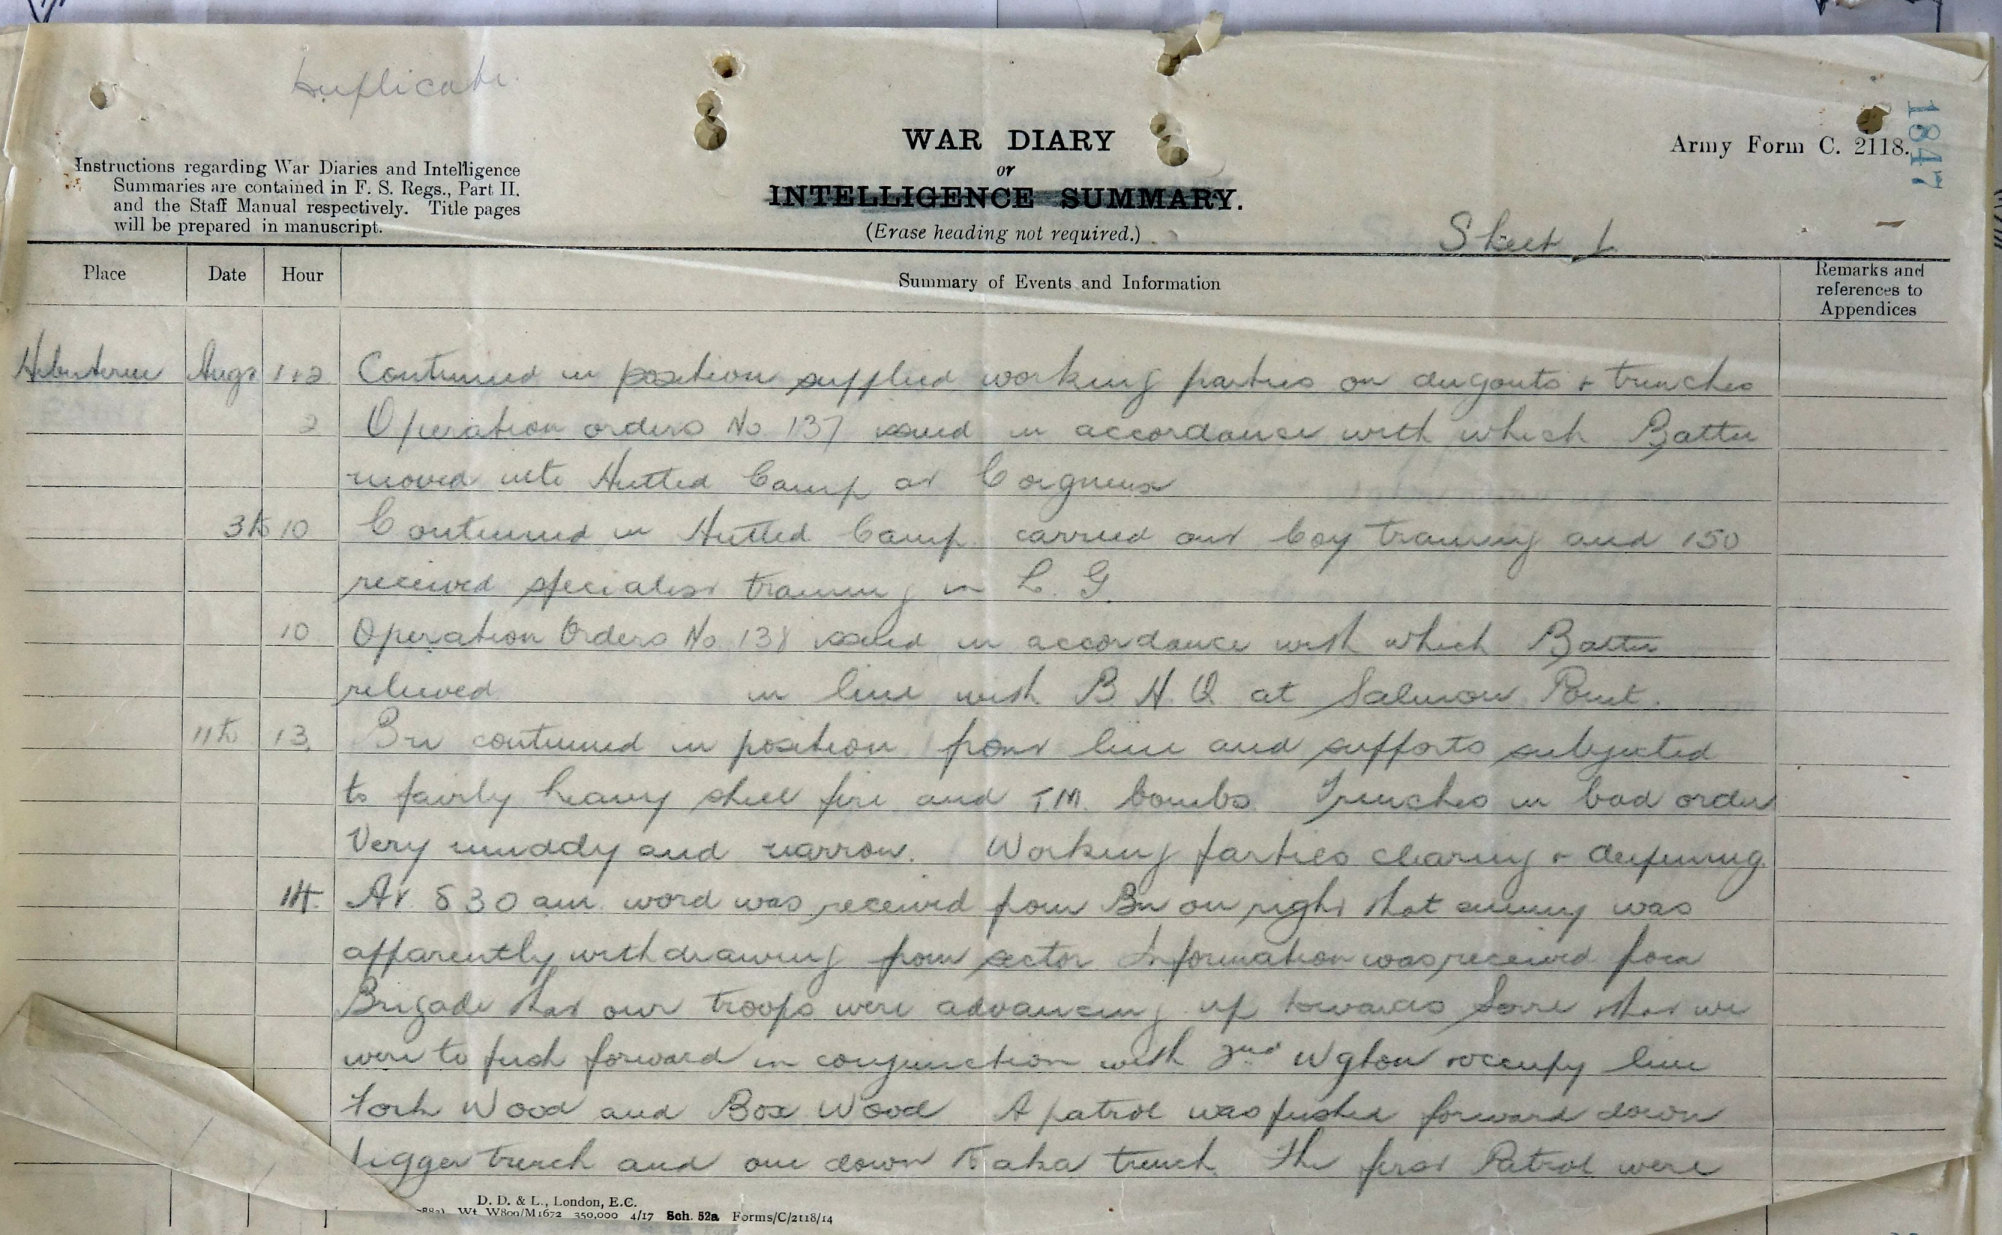 Duplicate.
1847
WAR DIARY
Army Form C. 2118.
or
Instructions regarding War Diaries and Intelligence
Summaries are contained in F. S. Regs., Part II.
and the Staff Manual respectively. Title pages
will be prepared in manuscript.
INTELLIGENCE SUMMARY.
(Erase heading not required.)
Sheet 1
Place Date Hour Summary of Events and Information Remarks and
references to
Appendices
Hebuterne Augt 1+2 Continued in position supplied working parties on dugouts + trenches
2 Operation orders No. 137 issued in accordance with which Battn
moved into Hutted Camp at Coigneux
3 to 10 Continued in Hutted Camp carried out Coy training and 150
received specialist training in L. G.
10 Operation Orders No. 138 issued in accordance with which Battn
relieved in line with B H Q at Salmon Point.
11 to 13. Bn continued in position front line and supports subjected
to fairly heavy shell fire and T.M. bombs. Trenches in bad order
Very muddy and narrow. Working parties clearing + deepening.
14. At 8 30 am word was received from Bn on right that enemy was
apparently withdrawing from sector Information was received from
Brigade that our troops were advancing up towards Serre that we
were to push forward in conjunction with 2nd Wgton + occupy line
Fork Wood and Box Wood A patrol was pushed forward down
Jigger trench and one down Kaka trench The first Patrol were
D. D. & L., London, E.C.
Wt. W809/M1672 350,000 4/17 Sch. 52a Forms/C/2118/14